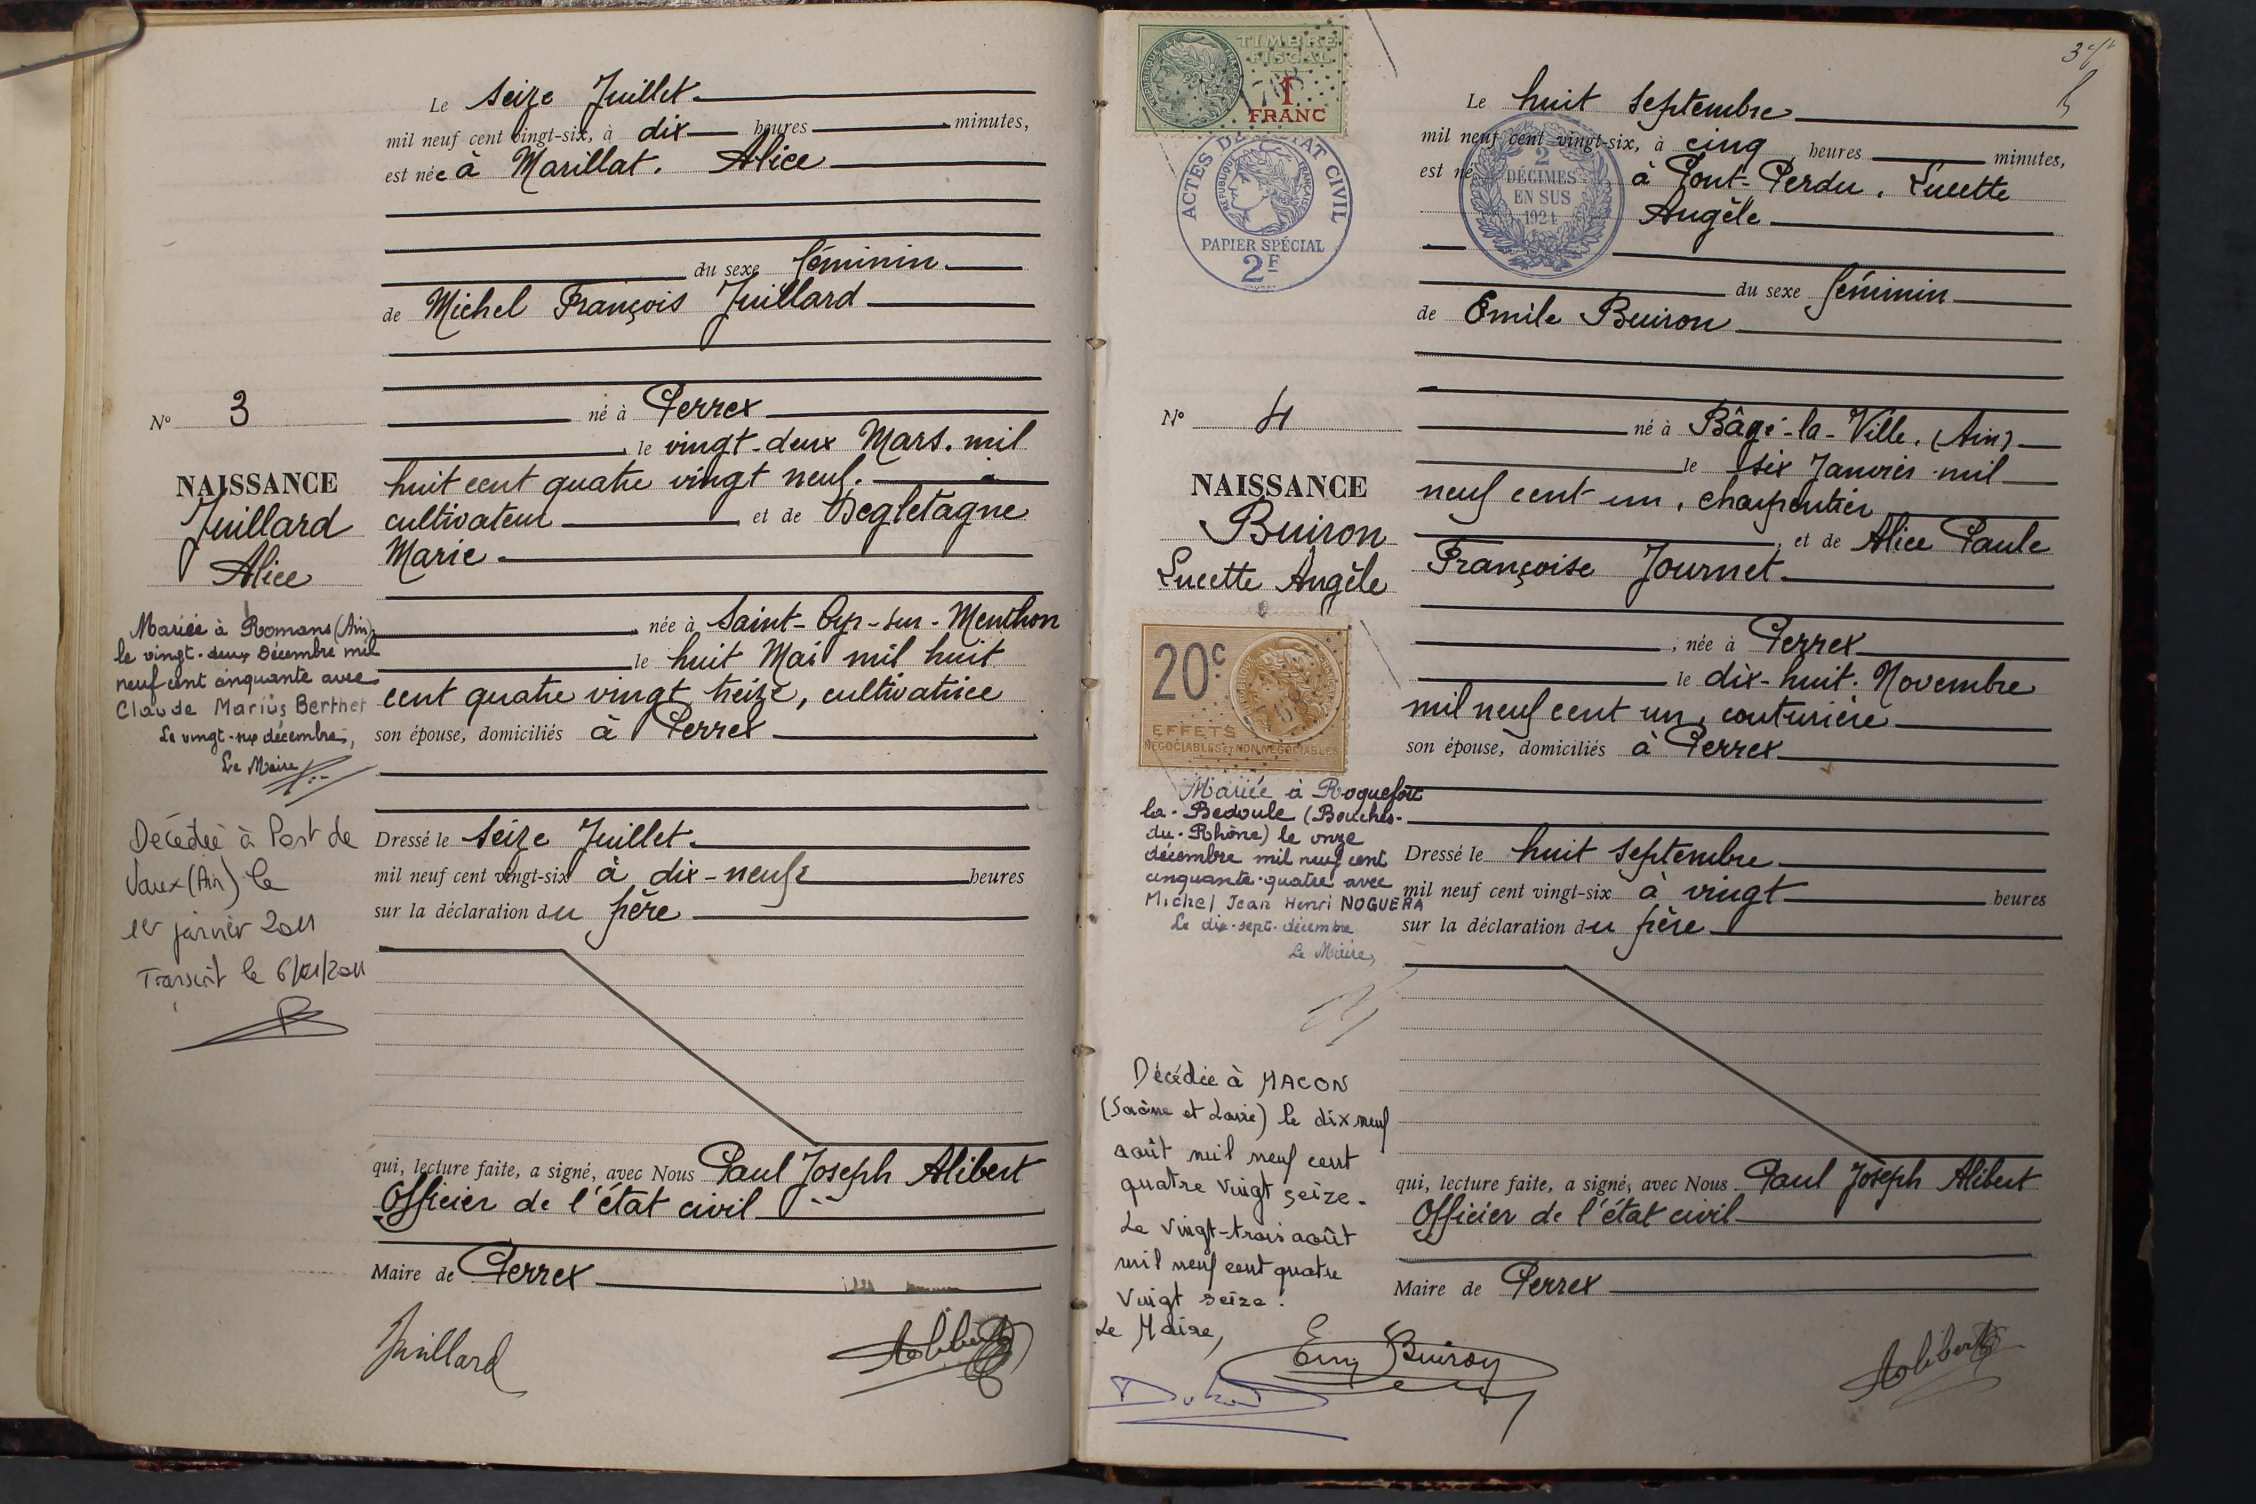 Le seize Juillet
mil neuf cent vingt-six, à dix heures minutes,
est née à Marillat. Alice
du sexe féminin
de Michel François Juillard
né à Perrex
le vingt-deux Mars. mil
huit cent quatre vingt neuf.
cultivateur et de Degletagne
Marie
née à Saint-Cyr-sur-Menthon
le huit Mai mil huit
cent quatre vingt treize, cultivatrice
son épouse, domiciliés à Perrex
Dressé le seize Juillet
mil neuf cent vingt-six à dix-neuf heures
sur la déclaration du père
qui, lecture faite, a signé, avec Nous Paul Joseph Alibert
Officier de l'état civil
Maire de Perrex
Juillard
Alibert
N° 3
NAISSANCE
Juillard
Alice
Mariée à Romans (Ain)
le vingt-deux Décembre mil
neuf cent cinquante avec
Claude Marius Berthet
Le vingt-six décembre,
Le Maire
Décédée à Pont de
Vaux (Ain) le
1er janvier 2011
Transcrit le 6/01/2011
TIMBRE
FISCAL
1
FRANC
ACTES DE L'ÉTAT CIVIL
RÉPUBLIQUE FRANÇAISE
PAPIER SPÉCIAL
2F
2
DÉCIMES
EN SUS
1921
Le huit septembre
mil neuf cent vingt-six, à cinq heures minutes,
est née à Pont-Perdu. Lucette
Angèle
du sexe féminin
de Emile Buiron
né à Bâgé-la-Ville. (Ain)
le six Janvier mil
neuf cent un, charpentier
, et de Alice Paule
Françoise Journet
, née à Perrex
le dix-huit. Novembre
mil neuf cent un, couturière
son épouse, domiciliés à Perrex
Dressé le huit septembre
mil neuf cent vingt-six à vingt heures
sur la déclaration du père
qui, lecture faite, a signé, avec Nous Paul Joseph Alibert
Officier de l'état civil
Maire de Perrex
Buiron
Alibert
N° 4
NAISSANCE
Buiron
Lucette Angèle
20c
EFFETS
NÉGOCIABLES ET NON NÉGOCIABLES
Mariée à Roquefort
la-Bedoule (Bouches-
du-Rhône) le onze
décembre mil neuf cent
cinquante-quatre avec
Michel Jean Henri NOGUERA
Le dix-sept-décembre
Le Maire,
Décédée à MACON
(Saône et Loire) le dix neuf
août mil neuf cent
quatre vingt seize.
Le vingt-trois août
mil neuf cent quatre
vingt seize.
Le Maire,